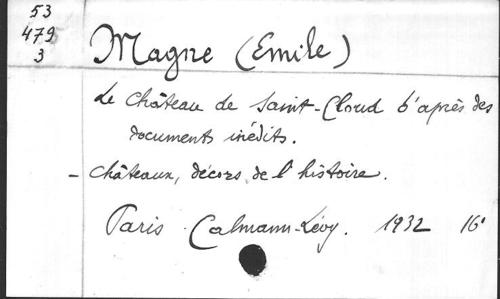 53
479
3
Magne (Emile)
Le château de Saint-Cloud d'après des
documents inédits.
- Châteaux, décors de l'histoire.
Paris Calmann-Lévy. 1932 16°